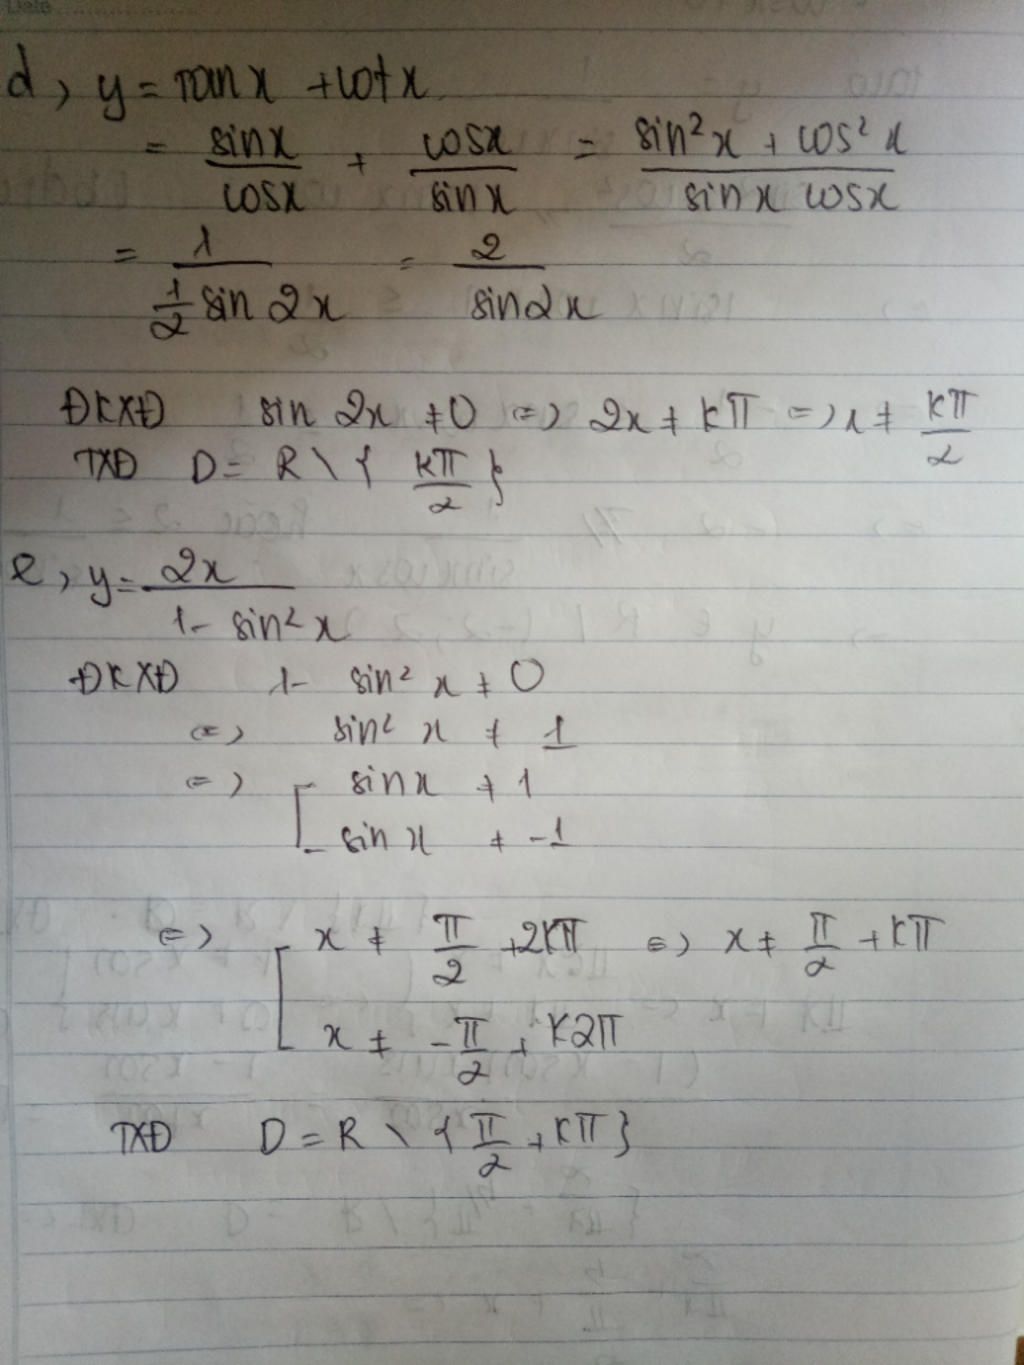 d, y = tan x + cot x
= sin x / cos x + cos x / sin x = sin² x + cos² x / sin x cos x
= 1 / 1/2 sin 2x = 2 / sin 2x
ĐKXĐ sin 2x ≠ 0 => 2x ≠ kπ => x ≠ kπ/2
TXĐ D = R \ { kπ/2 }
e, y = 2x / 1 - sin² x
ĐKXĐ 1 - sin² x ≠ 0
<=> sin² x ≠ 1
<=> [ sin x ≠ 1
sin x ≠ -1
<=> [ x ≠ π/2 + 2kπ <=> x ≠ π/2 + kπ
x ≠ -π/2 + k2π
TXĐ D = R \ { π/2 + kπ }